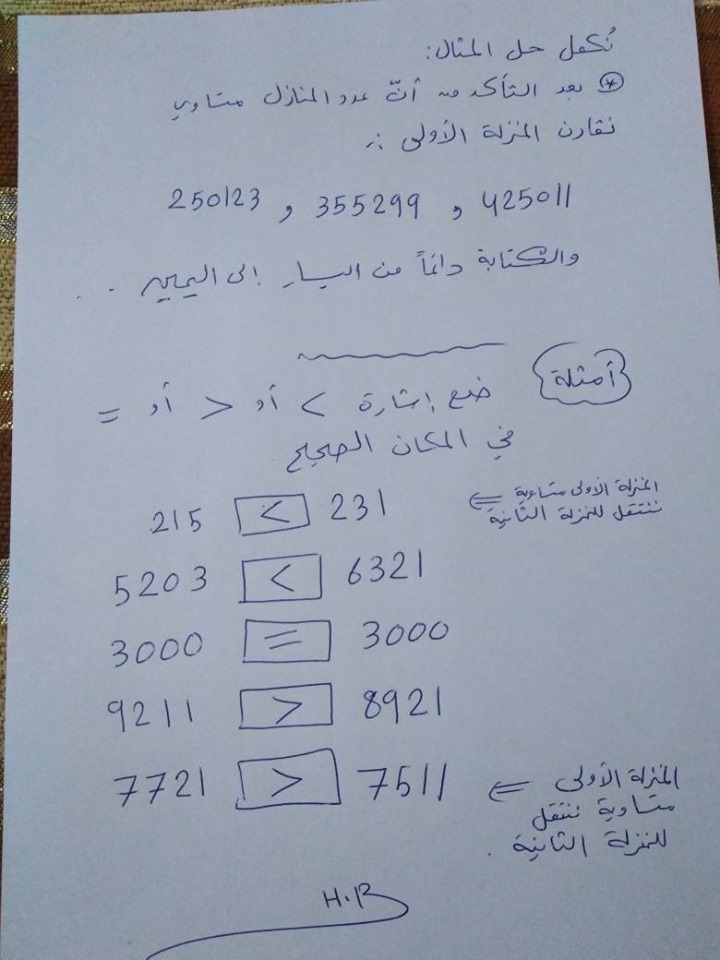 نُكمل حل المثال:
* بعد التأكد من أنّ عدد المنازل متساوي
نقارن المنزلة الأولى :-
250123 , 355299 , 425011
والكتابة دائماً من اليسار إلى اليمين . .
أمثلة
ضع إشارة < أو > أو =
في المكان الصحيح
215 < 231 ⇐ المنزلة الأولى متساوية
ننتقل للمنزلة الثانية
5203 < 6321
3000 = 3000
9211 > 8921
7721 > 7511 ⇐ المنزلة الأولى
متساوية ننتقل
للمنزلة الثانية .
H.B